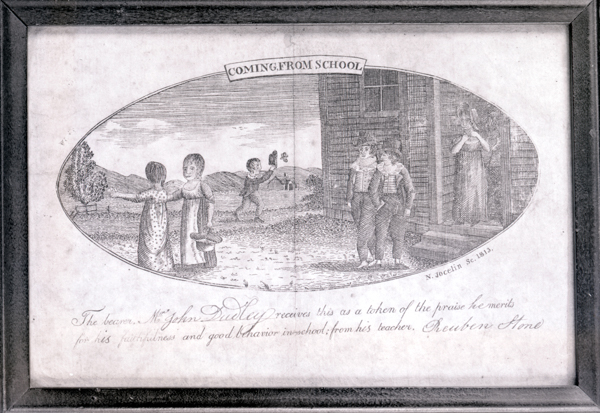 COMING FROM SCHOOL
N. Jocelin Sc. 1812.
The bearer, Mr. John Dudley receives this as a token of the praise he merits
for his faithfulness and good behavior in school; from his teacher. Reuben Stone